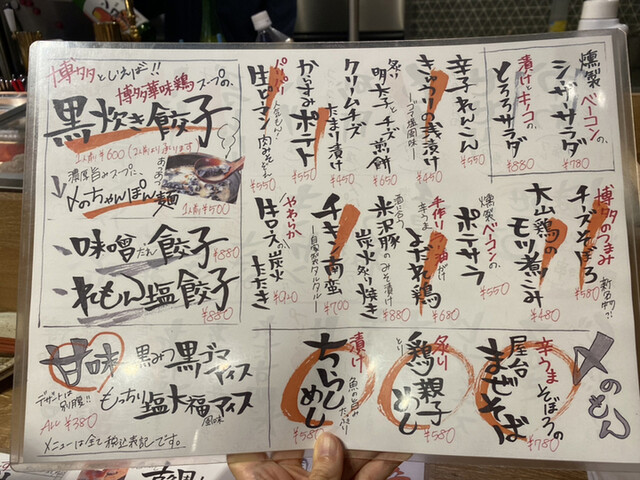 博多といえば!!
博多華味鶏スープの、
黒炊き餃子
1人前¥600(2人前より承ります
濃厚旨みスープに、
〆のちゃんぽん麺
1人前¥500
味噌だれ餃子
¥880
れもん塩餃子
¥880
甘味
デザートは別腹!!
ALL ¥380
黒みつ黒ゴマアイス
もっちり塩大福アイス
風味
メニューは全て税込表記です。
燻製ベーコンの、
シーザーサラダ
¥780
漬けとキノコの、
とろろサラダ
¥880
辛子れんこん
¥550
きゅうりの浅漬け
ーゴマ塩風味ー
¥450
炙り
明太子とチーズの煎餅
¥650
クリームチーズ
たまり漬け
¥450
からすみポテト
¥550
パリパリ
生ピーマン
肉みそ
¥550
博多のうまみ
チーズそぼろ
¥580
大山鶏の
モツ煮こみ
¥480
燻製ベーコンの、
ポテサラ
¥550
手作りラー油がけ
よだれ鶏
¥680
酒に合う
米沢豚のみそ漬け
炭火炙り焼き
¥880
チキン南蛮
ー自家製タルタルー
¥700
やわらか
牛ロースの炭火
たたき
¥920
〆のもん
辛うまそぼろの
屋台まぜそば
¥780
炙り
鶏親子めし
とり
¥580
漬け
魚の旨みたっぷり
ちらしめし
¥580